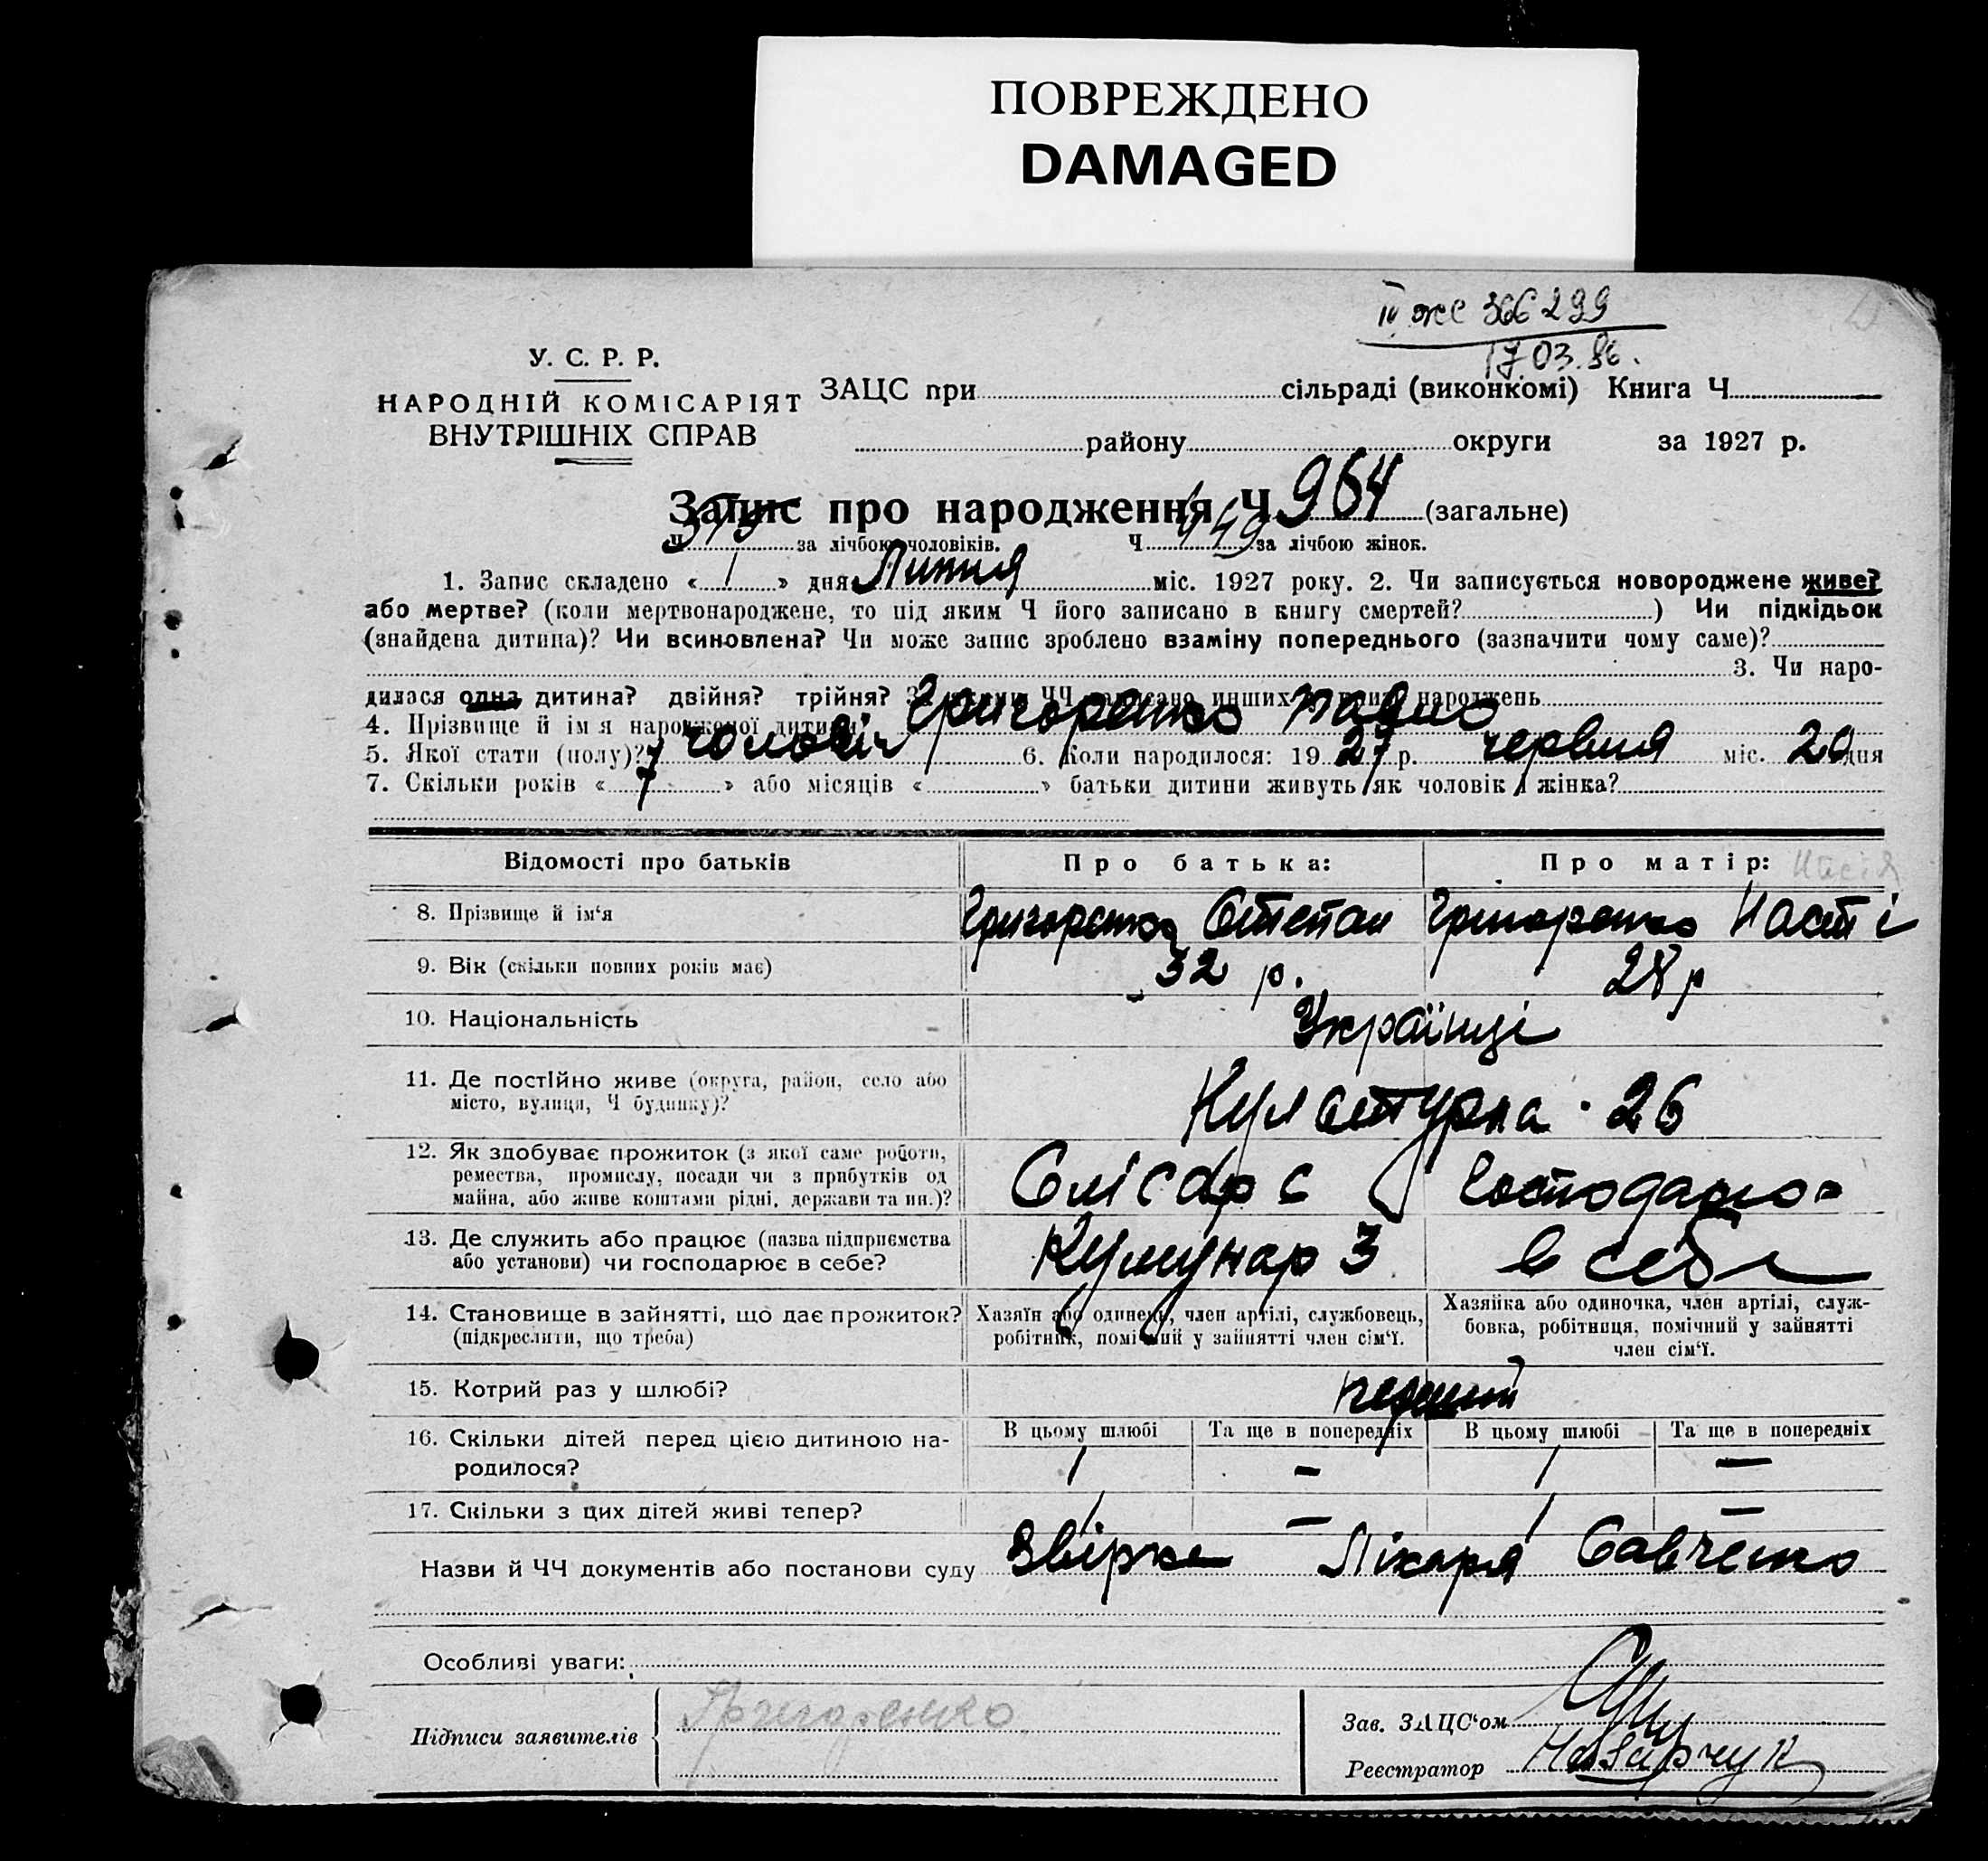 ПОВРЕЖДЕНО
DAMAGED
IV жс 366299
17.03.86.
У. С. Р. Р.
НАРОДНІЙ КОМІСАРІЯТ
ВНУТРІШНІХ СПРАВ
ЗАЦС при сільраді (виконкомі) Книга Ч
району округи за 1927 р.
Запис про народження Ч 964 (загальне)
Ч за лічбою чоловіків. Ч 449 за лічбою жінок.
1. Запис складено « 1 » дня Липня міс. 1927 року. 2. Чи записується новороджене живе?
або мертве? (коли мертвонароджене, то під яким Ч його записано в книгу смертей? ) Чи підкідьок
(знайдена дитина)? Чи всиновлена? Чи може запис зроблено взаміну попереднього (зазначити чому саме)?
3. Чи наро-
дилася одна дитина? двійня? трійня? За якими ЧЧ записано инших народжень
4. Прізвище й ім я народженої дитини Григоренко Павло
5. Якої стати (полу)? чоловіч 6. Коли народилося: 1927 р. червня міс. 20 дня
7. Скільки років « 7 » або місяців « » батьки дитини живуть як чоловік і жінка?
Відомості про батьків Про батька: Про матір:
8. Прізвище й ім'я Григоренко Степан Григоренко Насті
9. Вік (скільки повних років має) 32 р. 28 р
10. Національність Українці
11. Де постійно живе (округа, район, село або
місто, вулиця, Ч будинку)? 26
12. Як здобуває прожиток (з якої саме роботи,
ремества, промислу, посади чи з прибутків од
майна, або живе коштами рідні, держави та ин.)? Слісар Господарю
13. Де служить або працює (назва підприємства
або установи) чи господарює в себе? в себе
14. Становище в зайнятті, що дає прожиток?
(підкреслити, що треба)
Хазяїн або одинець, член артілі, службовець,
робітник, помічний у зайнятті член сім'ї.
Хазяйка або одиночка, член артілі, служ-
бовка, робітниця, помічний у зайнятті
член сім'ї.
15. Котрий раз у шлюбі? перший
16. Скільки дітей перед цією дитиною на-
родилося?
В цьому шлюбі Та ще в попередніх В цьому шлюбі Та ще в попередніх
1 – 1 –
17. Скільки з цих дітей живі тепер? 1 – 1 –
Назви й ЧЧ документів або постанови суду Лікаря Савченко
Особливі уваги:
Підписи заявителів Григоренко
Зав. ЗАЦС'ом
Реєстратор Назарчук